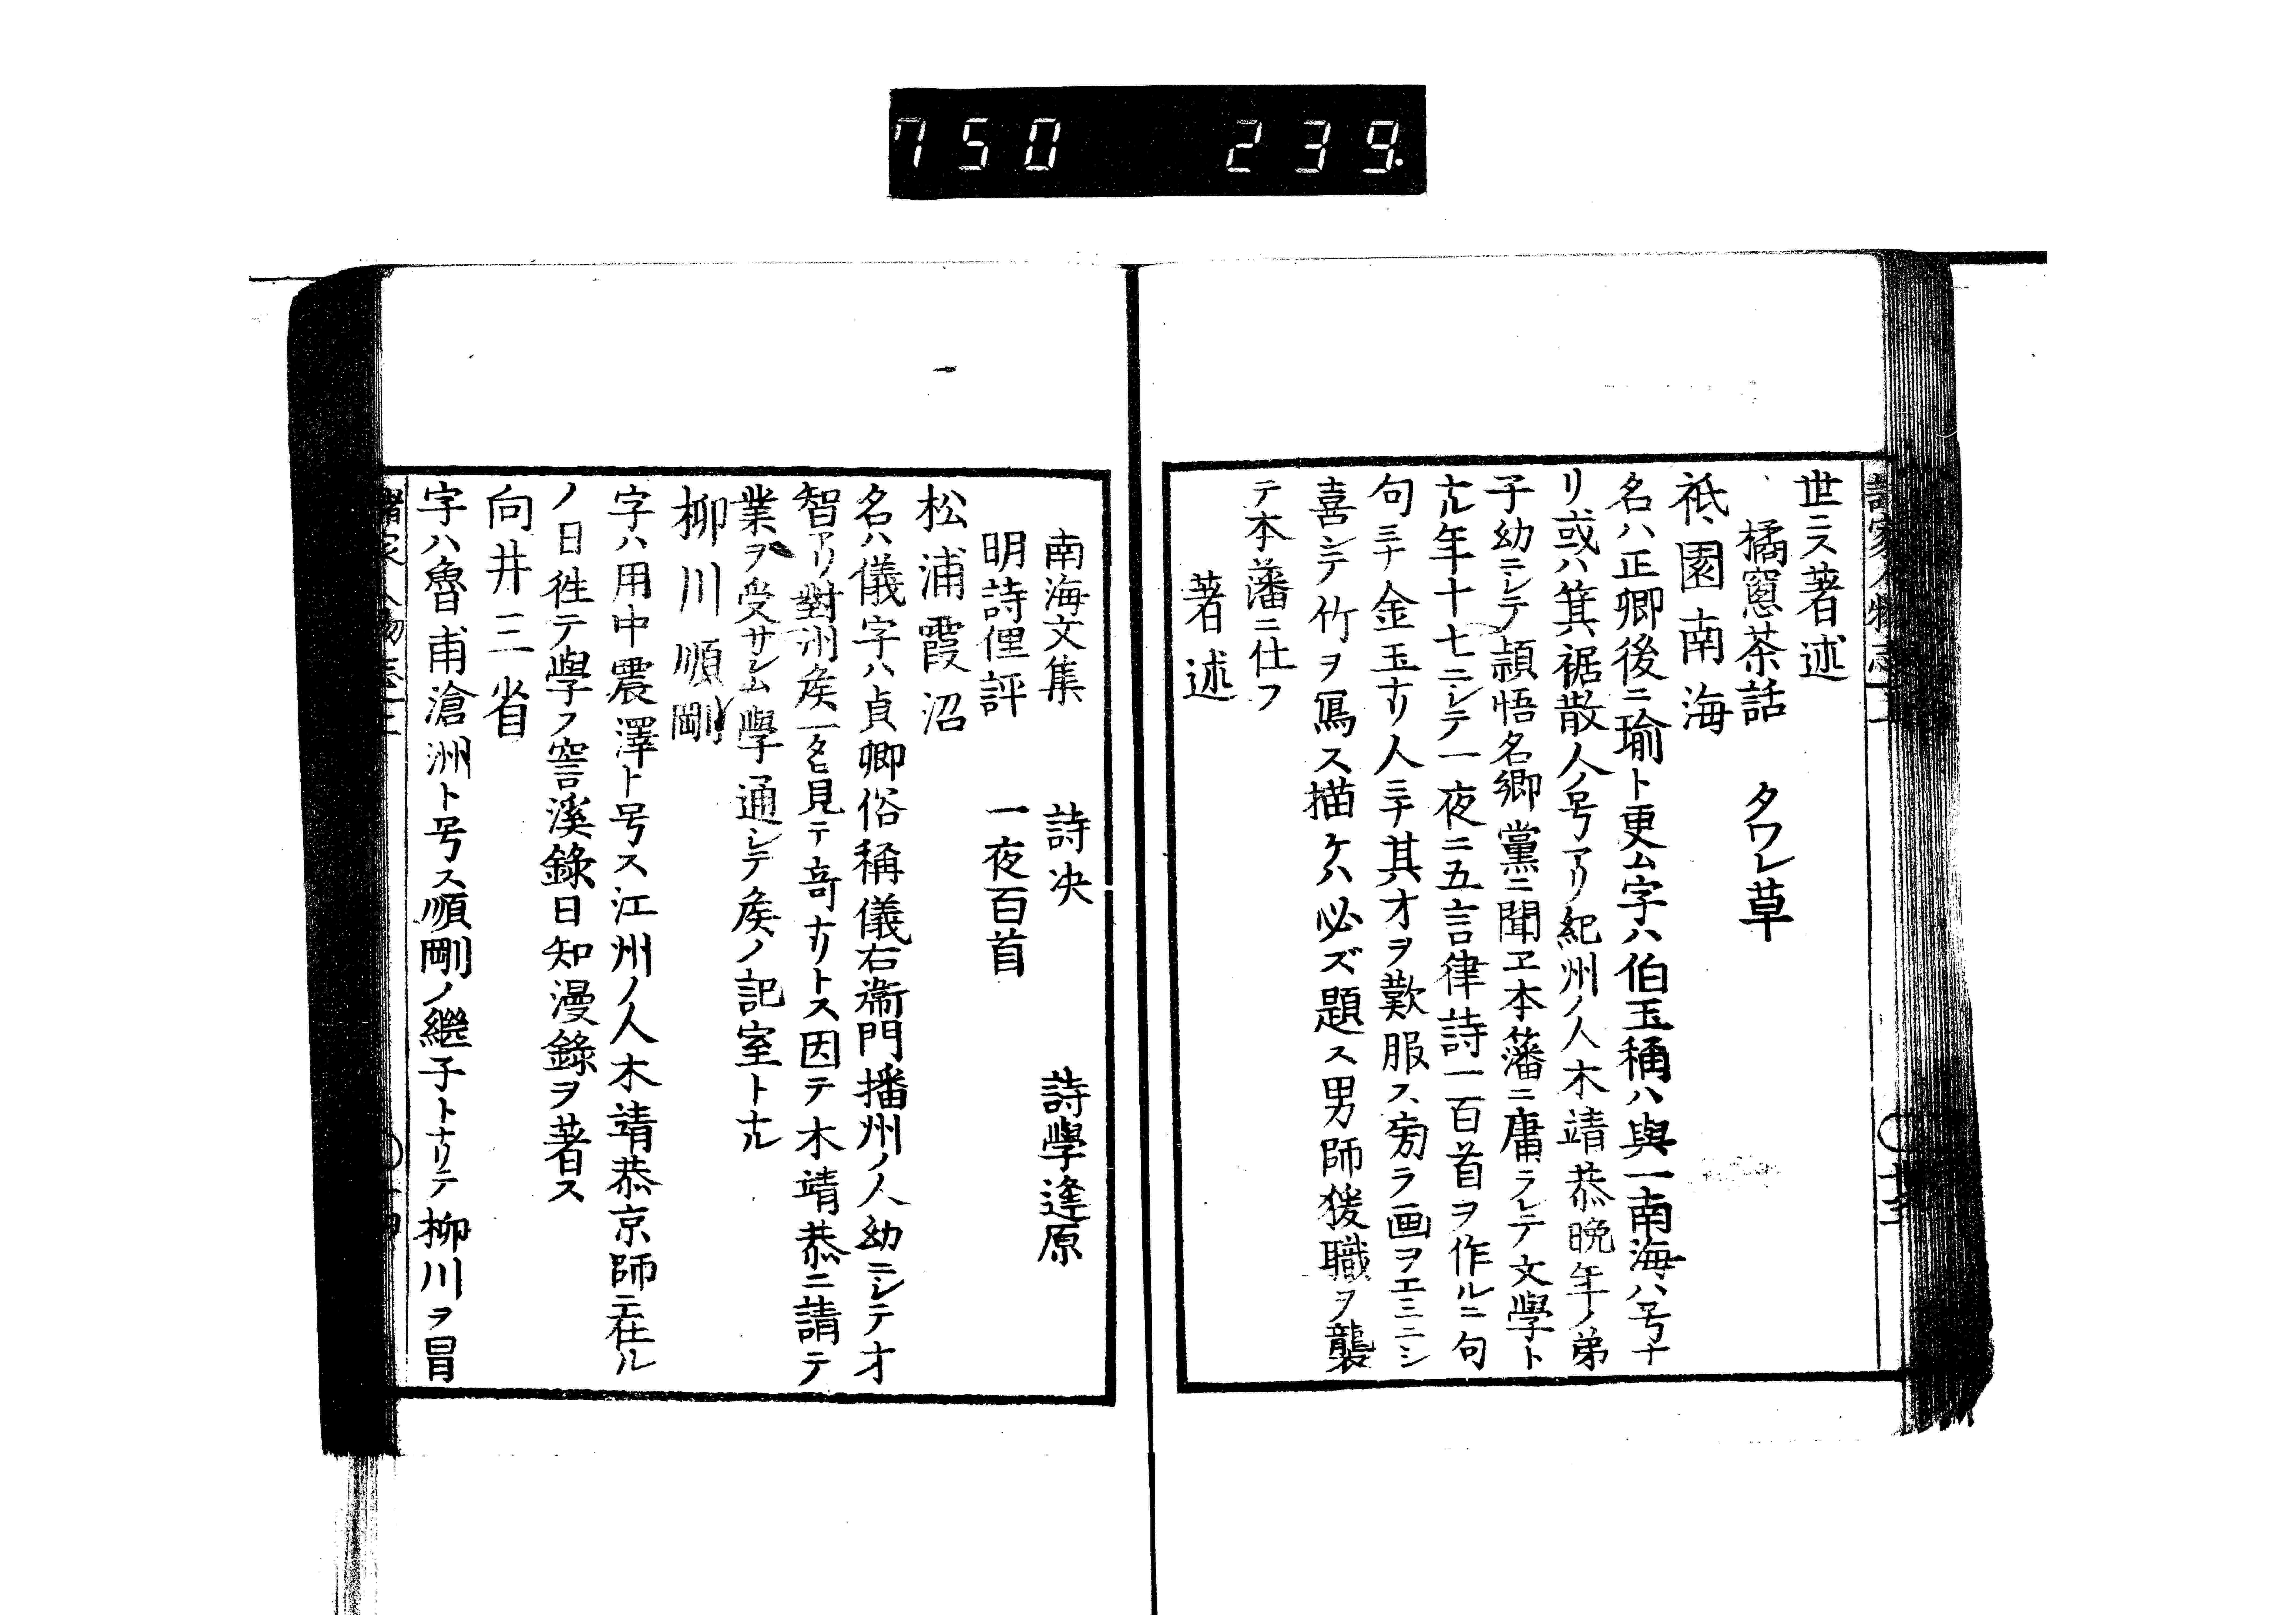 750 239.
世ニス著述
橘窻茶話 タワレ草
祇園南海
名ハ正卿後ニ瑜ト更ム字ハ伯玉稱ハ與一南海ハ号ナ
リ或ハ箕裾散人ノ号アリ紀州ノ人木靖恭晩年ノ弟
子幼ニシテ頴悟名郷黨ニ聞ヱ本藩ニ庸ラレテ文學ト
ナル年十七ニシテ一夜ニ五言律詩一百首ヲ作ルニ句
句ミナ金玉ナリ人ミナ其才ヲ歎服ス旁ラ画ヲエミニシ
喜シテ竹ヲ寫ス描ケハ必ズ題ス男師援職ヲ襲
テ本藩ニ仕フ
著述
南海文集 詩决 詩學逢原
明詩俚評 一夜百首
松浦霞沼
名ハ儀字ハ貞卿俗稱儀右衞門播州ノ人幼ニシテ才
智アリ對洲矦一タヒ見テ奇ナリトス因テ木靖恭ニ請テ
業ヲ受サレム學通シテ矦ノ記室トナル
柳川順剛
字ハ用中震澤ト号ス江州ノ人木靖恭京師ニ在ル
ノ日徃テ學フ窖溪錄日知漫錄ヲ著ス
向井三省
字ハ魯甫滄洲ト号ス順剛ノ繼子トナリテ柳川ヲ冒
諸家人物志上